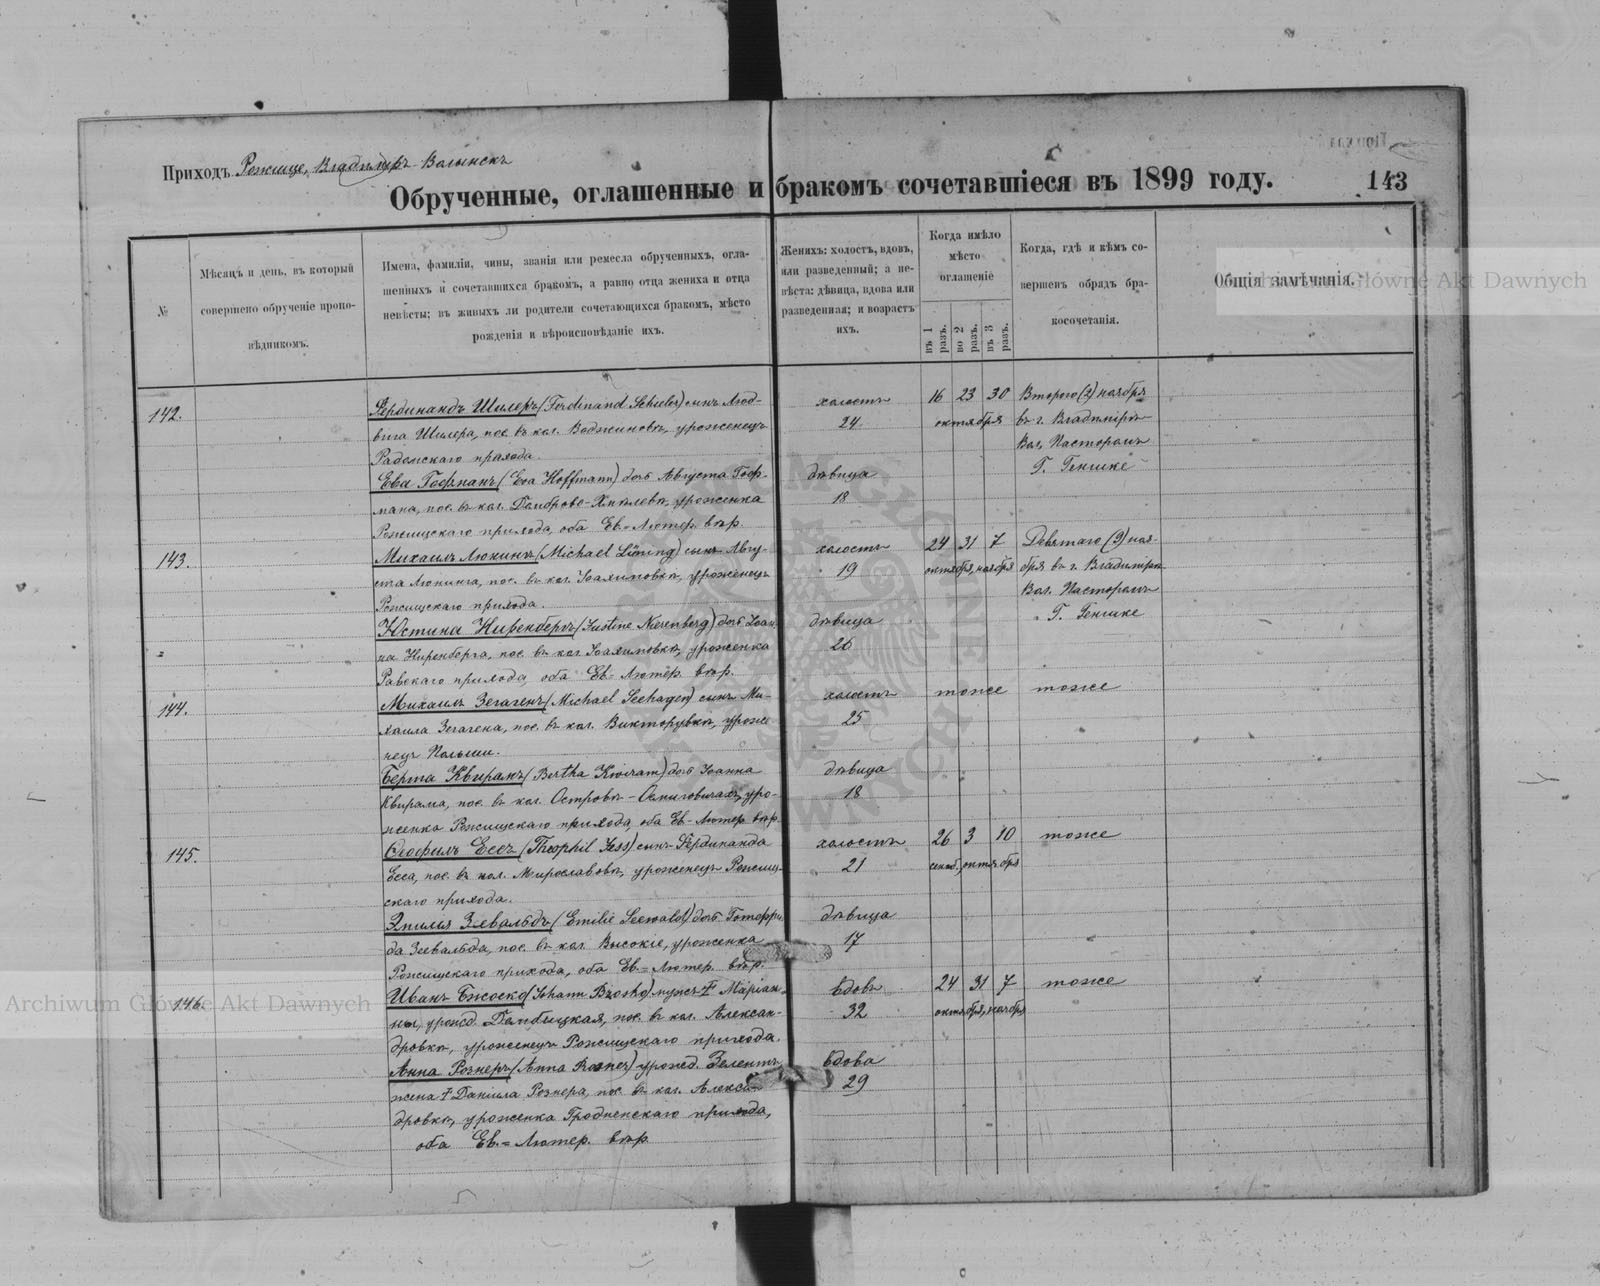 Приходъ Рожище, Владимиръ Волынскъ
Обрученные, оглашенные и бракомъ сочетавшіеся въ 1899 году.
143
№
Мѣсяцъ и день, въ который
совершено обрученіе пропо-
вѣдникомъ.
Имена, фамиліи, чины, званія или ремесла обрученныхъ, огла-
шенныхъ и сочетавшихся бракомъ, а равно отца жениха и отца
невѣсты; въ живыхъ ли родители сочетающихся бракомъ, мѣсто
рожденія и вѣроисповѣданіе ихъ.
Женихъ: холостъ, вдовъ,
или разведенный; а не-
вѣста: дѣвица, вдова или
разведенная; и возрастъ
ихъ.
Когда имѣло
мѣсто
оглашеніе
въ 1 разъ.
во 2 разъ.
въ 3 разъ.
Когда, гдѣ и кѣмъ со-
вершенъ обрядъ бра-
косочетанія.
Общія замѣчанія.
Archiwum Główne Akt Dawnych
142.
Фердинандъ Шилеръ (Ferdinand Schieler) сынъ Люд-
вига Шилера, пос. въ кол. Воджиновкѣ, уроженецъ
Радомскаго прихода.
Ева Гофманъ (Eva Hoffmann) дочь Августа Гоф-
мана, пос. въ кол. Домброво-Хмѣлевкѣ, уроженка
Рожищскаго прихода, оба Ев.-Лютер. вѣр.
холостъ
24
дѣвица
18
16 23 30
октября
Второго (2) ноября
въ г. Владимірѣ
Вол. Пасторомъ
Г. Геншке
143.
Михаилъ Люнингъ (Michael Lüning) сынъ Авгу-
ста Люнинга, пос. въ кол. Іоахимовкѣ, уроженецъ
Рожищскаго прихода.
Юстина Ниренбергъ (Justine Nierenberg) дочь Іоан-
на Ниренберга, пос. въ кол. Іоахимовкѣ, уроженка
Равскаго прихода, оба Ев.-Лютер. вѣр.
холостъ
19
дѣвица
26
24 31 7
октября, ноября
Девятаго (9) ноя-
бря въ г. Владимірѣ
Вол. Пасторомъ
Г. Геншке
144.
Михаилъ Зегагенъ (Michael Seehagen) сынъ Ми-
хаила Зегагена, пос. въ кол. Викторувкѣ, уроже-
нецъ Польши.
Берта Квирамъ (Bertha Kwiram) дочь Іоанна
Квирама, пос. въ кол. Островкѣ-Осмиговичахъ, уро-
женка Рожищскаго прихода, оба Ев.-Лютер. вѣр.
холостъ
25
дѣвица
18
тоже
тоже
145.
Ѳеофилъ Ессъ (Theophil Jess) сынъ Фердинанда
Есса, пос. въ кол. Мирославовкѣ, уроженецъ Рожищ-
скаго прихода.
Эмилія Зевальдъ (Emilie Seewald) дочь Готфри-
да Зевальда, пос. въ кол. Высокіе, уроженка
Рожищскаго прихода, оба Ев.=Лютер. вѣр.
холостъ
21
дѣвица
17
26 3 10
сентяб., октября
тоже
146.
Иванъ Бжоско (Johann Bżosko) мужъ † Маріан-
ны, урожд. Дембицкая, пос. въ кол. Алексан-
дровкѣ, уроженецъ Рожищскаго прихода.
Анна Рознеръ (Anna Rosner) урожд. Зелентъ
жена † Даніила Рознера, пос. въ кол. Алексан-
дровкѣ, уроженка Гродненскаго прихода,
оба Ев.=Лютер. вѣр.
вдовъ
32
вдова
29
24 31 7
октября, ноября
тоже
Archiwum Główne Akt Dawnych